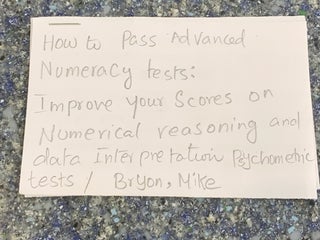 How to Pass Advanced
Numeracy tests:
Improve your Scores on
Numerical reasoning and
data Interpretation Psychometric
tests / Bryon, Mike